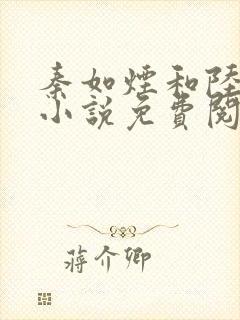 秦如煙和陸
小說免費閱
蔣介卿